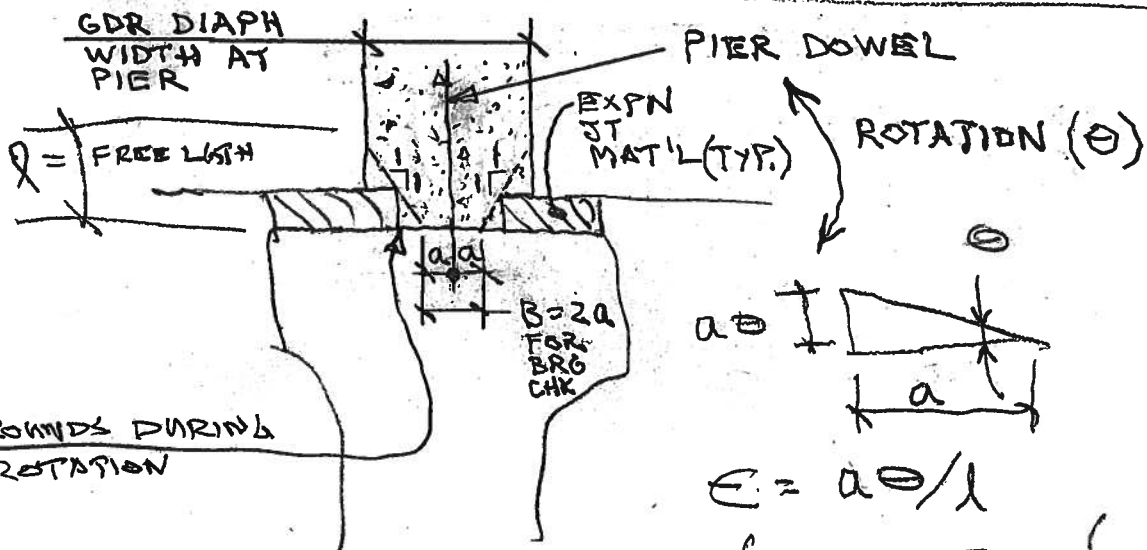 GDR DIAPH
WIDTH AT
PIER
PIER DOWEL
EXPN
JT
MAT'L (TYP.)
ROTATION (θ)
l = FREE LGTH
θ
a a
B = 2a
FOR
BRG
CHK
aθ
a
ROUNDS DURING
ROTATION
ε = aθ/l